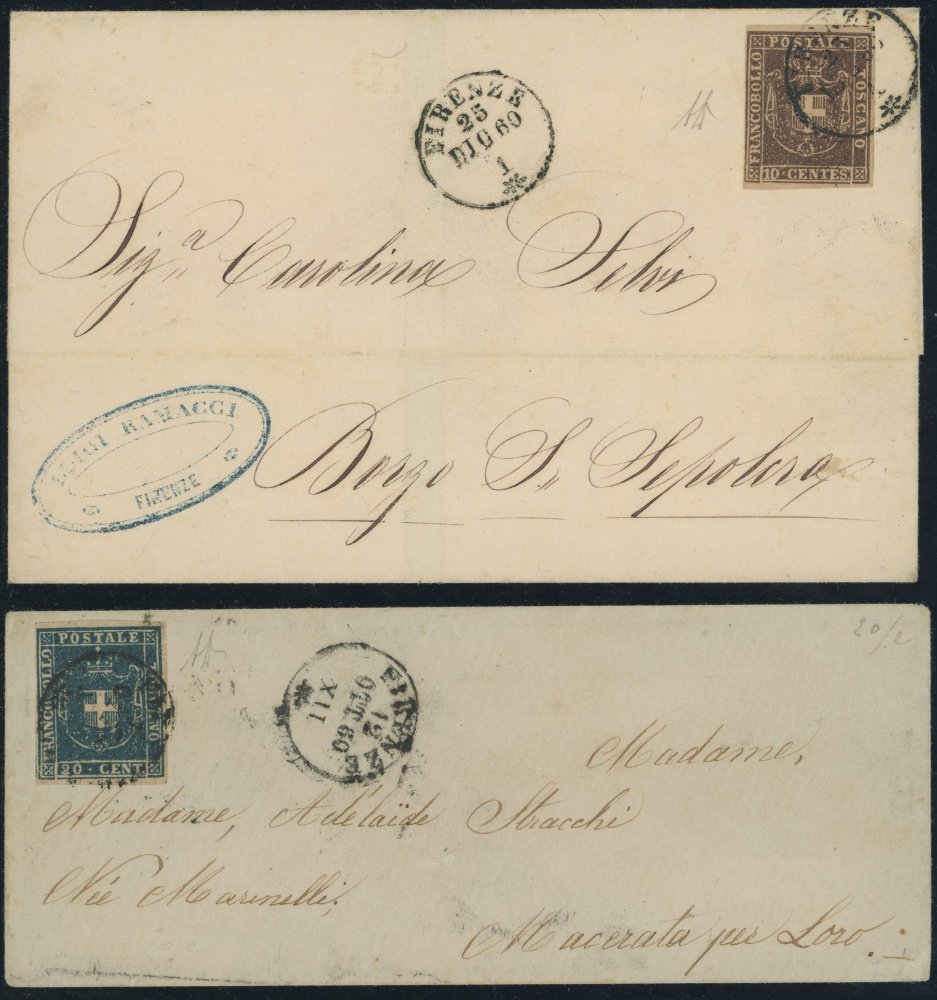 FRANCOBOLLO POSTALE TOSCANO
10 CENTES
FIRENZE
25
DIC 60
1
Sig.ª Carolina Selvi
LUIGI RAMACCI
FIRENZE
Borgo S. Sepolcra
20/2
FRANCOBOLLO POSTALE
20 CENT
FIRENZE
12
OTT 60
XII
Madame,
Madame, Adélaïde Stracchi
Née Marinelli,
Macerata per Loro.